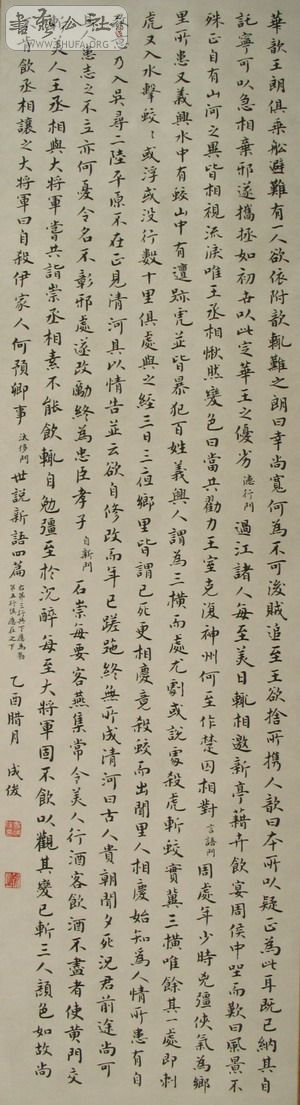 華歆王朗俱乘船避難有一人欲依附歆輒難之朗曰幸尚寬何為不可後賊追至王欲捨所攜人歆曰本所以疑正為此耳既已納其自
託寧可以急相棄邪遂攜拯如初世以此定華王之優劣 德行門 過江諸人每至美日輒相邀新亭藉卉飲宴周侯中坐而歎曰風景不
殊正自有山河之異皆相視流淚唯王丞相愀然變色曰當共勠力王室克復神州何至作楚囚相對 言語門 周處年少時兇彊俠氣為鄉
里所患又義興水中有蛟山中有邅跡虎並皆暴犯百姓義興人謂為三橫而處尤劇或說處殺虎斬蛟實冀三橫唯餘其一處即刺
虎又入水擊蛟蛟或浮或没行數十里俱處與之經三日三夜鄉里皆謂已死更相慶竟殺蛟而出聞里人相慶始知為人情所患有自
意乃入吳尋二陸平原不在正見清河具以情告並云欲自修改而年已蹉跎終無所成清河曰古人貴朝聞夕死況君前途尚可
患志之不立亦何憂令名不彰邪處遂改勵終為忠臣孝子 自新門 石崇每要客燕集常令美人行酒客飲酒不盡者使黃門交
美人王丞相與大將軍嘗共詣崇丞相素不能飲輒自勉彊至於沉醉每至大將軍固不飲以觀其變已斬三人顏色如故尚
飲丞相讓之大將軍曰自殺伊家人何預卿事 汰侈門 世說新語四篇 乙酉腊月 成俊
書法公社
WWW.SHUFA.ORG